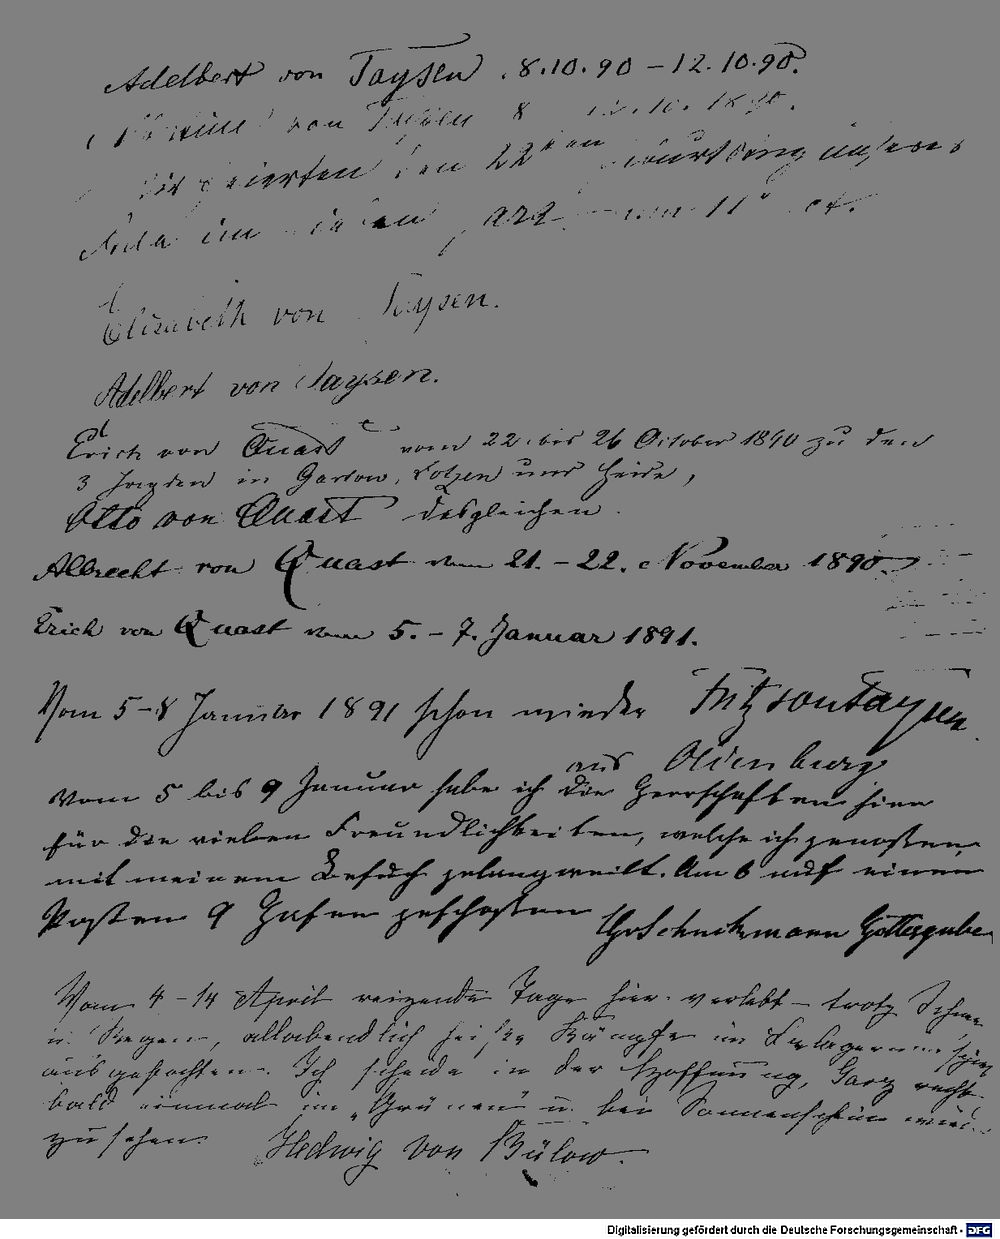 Adelbert von Taysen. 8.10.90 – 12.10.90.
von Taysen 8 12.10.1890.
Wir feierten den 22ten Geburtstag unseres
im 11
Elisabeth von Taysen.
Adelbert von Taysen.
Erich von Quast vom 22. bis 26 October 1890 zu den
3 Jagden in Gartow, Lotzen und Heide,
Otto von Quast desgleichen.
Albrecht von Quast vom 21. – 22. November 1890.
Erich von Quast vom 5. – 7. Januar 1891.
Vom 5–8 Januar 1891 schon wieder Fritz von Taysen
aus Oldenburg
Vom 5 bis 9 Januar habe ich die Herrschaften hier
für die vielen Freundlichkeiten, welche ich genoßen,
mit meinem Besuch gelangweilt. Am 6 auf einem
Posten 9 Hasen geschoßen
Vom 4 – 14 April reizende Tage hier verlebt – trotz Schnee
u. Regen, allabendlich heiße Kämpfe im
ausgefochten. Ich scheide in der Hoffnung, Garz recht
bald einmal im „Grünen" u. bei Sonnenschein
zu sehen. Hedwig von Bülow.
Digitalisierung gefördert durch die Deutsche Forschungsgemeinschaft - DFG